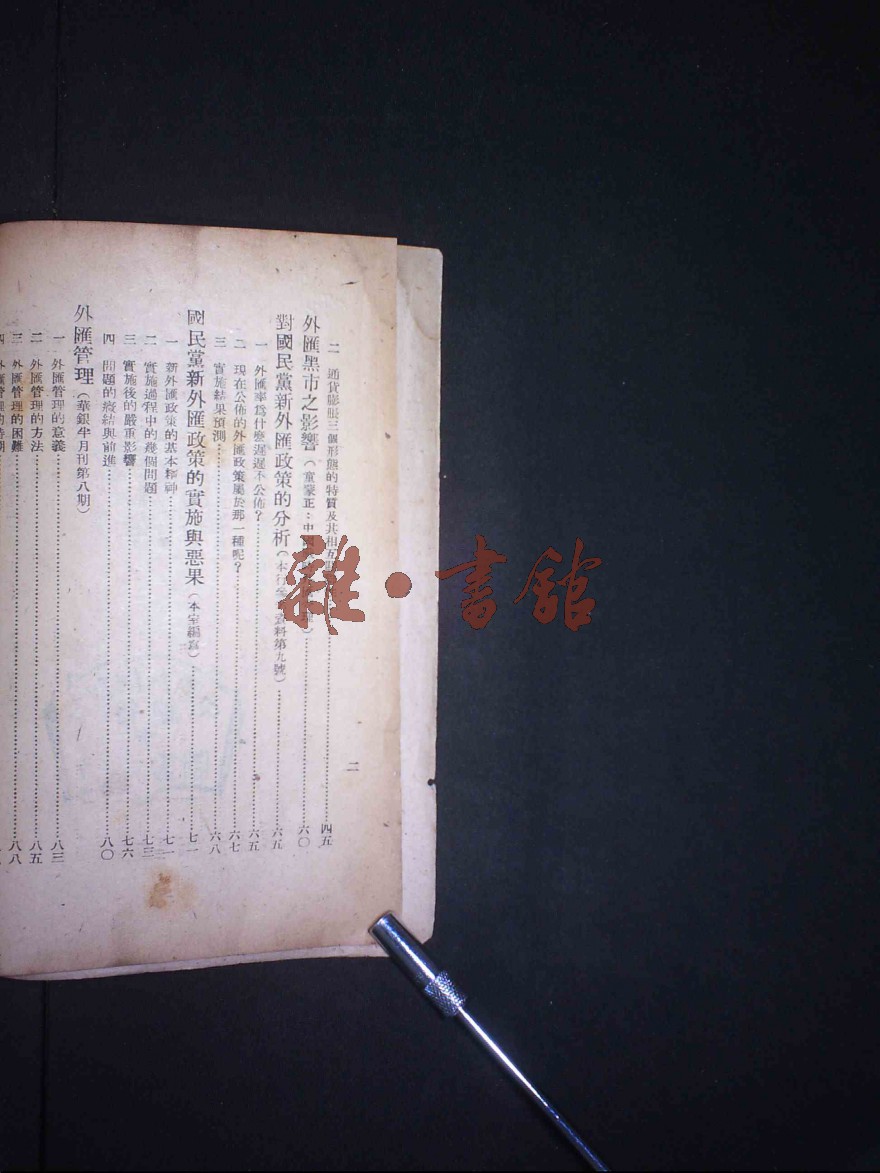 二 通貨膨脹三個形態的特質及其相互 四五
外匯黑市之影響（童蒙正：中 ）六〇
對國民黨新外匯政策的分析（本行 資料第九號）六五
一 外匯率爲什麼遲遲不公佈？ 六五
二 現在公佈的外匯政策屬於那一種呢？ 六七
三 實施結果預測 六八
國民黨新外匯政策的實施與惡果（本室編寫）七一
一 新外匯政策的基本精神 七一
二 實施過程中的幾個問題 七三
三 實施後的嚴重影響 七六
四 問題的癥結與前進 八〇
外匯管理（華銀半月刊第八期）
一 外匯管理的意義 八三
二 外匯管理的方法 八五
三 外匯管理的困難 八八
四 外匯管理的時期
二
雜·書館